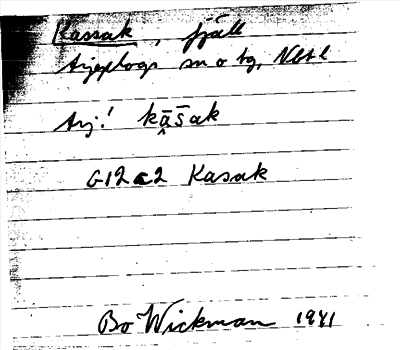 Kassak, fjäll
Arjeplogs sn o tg, Nbtl
Arj! kā̭šak
G12c2 Kasak
Bo Wickman 1941